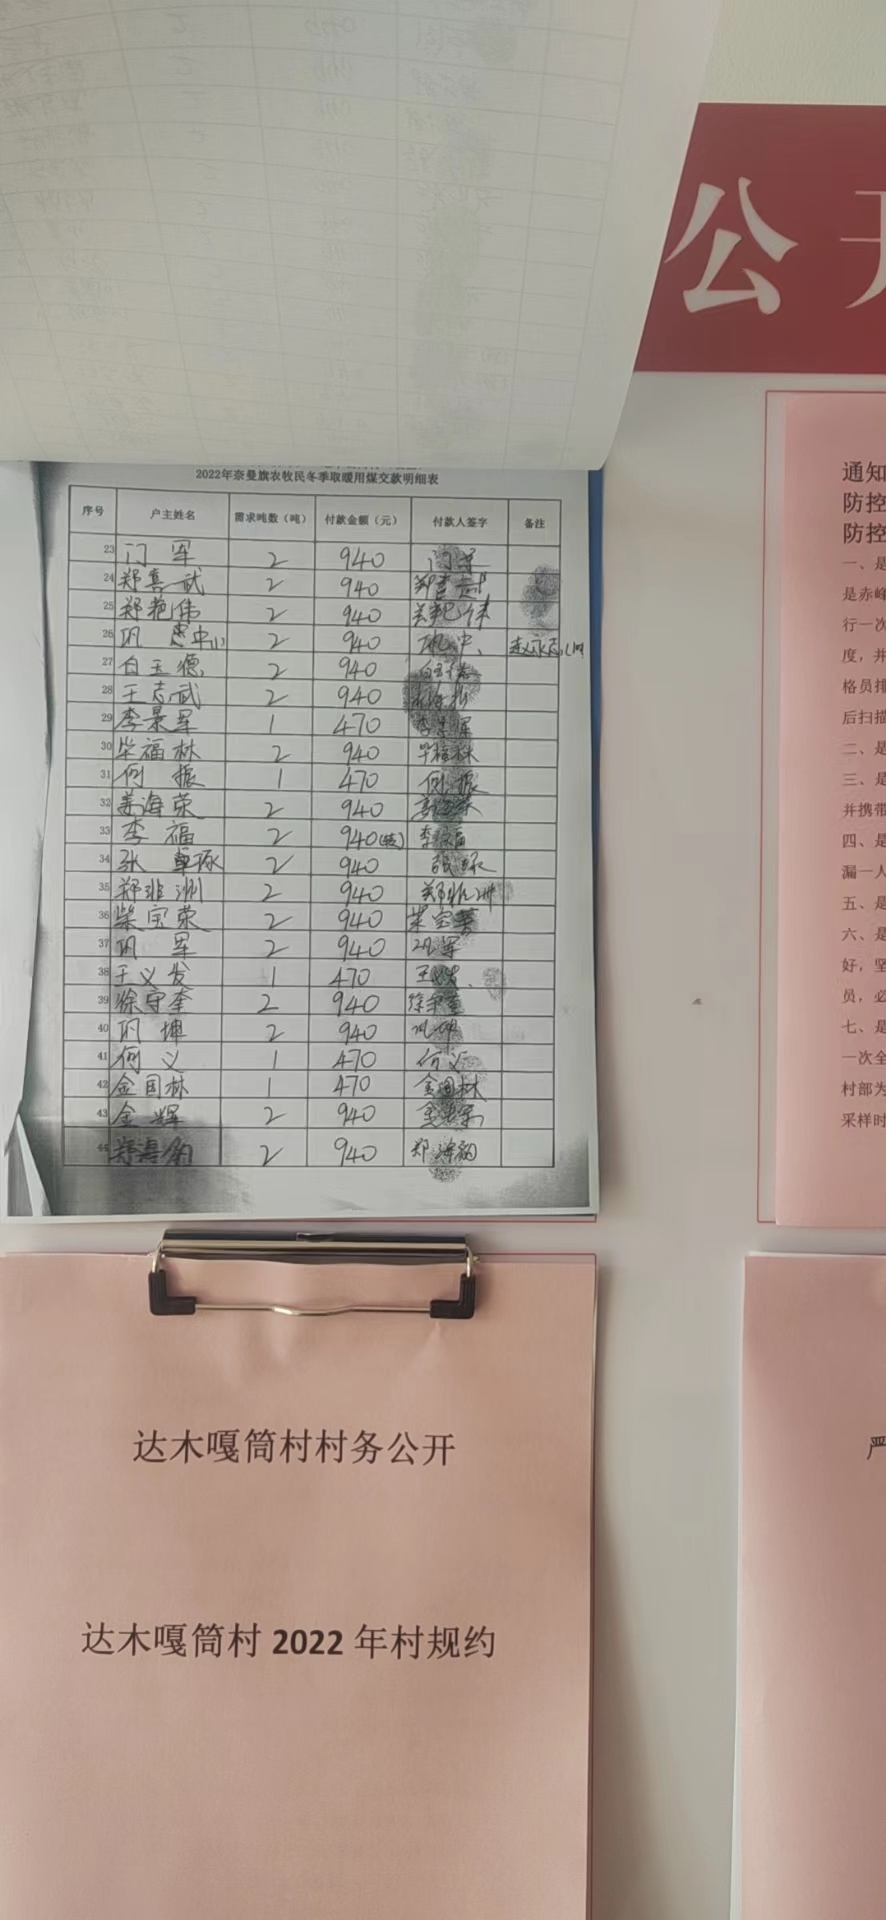 公开
2022年奈曼旗农牧民冬季取暖用煤交款明细表
序号 户主姓名 需求吨数（吨） 付款金额（元） 付款人签字 备注
23 门军 2 940 门军
24 郑喜武 2 940
25 郑艳伟 2 940 郑艳伟
26 巩忠中(1) 2 940
27 白玉德 2 940
28 王志武 2 940
29 李景军 1 470
30 毕福林 2 940 毕福林
31 何振 1 470 何振
32 姜海荣 2 940
33 李福 2 940 李福
34 张琢 2 940 张琢
35 郑非洲 2 940 郑非洲
36 柴宝荣 2 940 柴宝荣
37 巩军 2 940 巩军
38 王义发 1 470 王义发
39 徐守奎 2 940 徐守奎
40 巩坤 2 940 巩坤
41 何义 1 470 何义
42 金国林 1 470 金国林
43 金辉 2 940
44 郑海钧 2 940 郑海钧
达木嘎筒村村务公开
达木嘎筒村 2022 年村规约
通知
防控
防控
一、是
是赤峰
行一次
度，并
格员排
后扫描
二、是
三、是
并携带
四、是
漏一人
五、是
六、是
好，坚
员，必
七、是
一次全
村部为
采样时
严